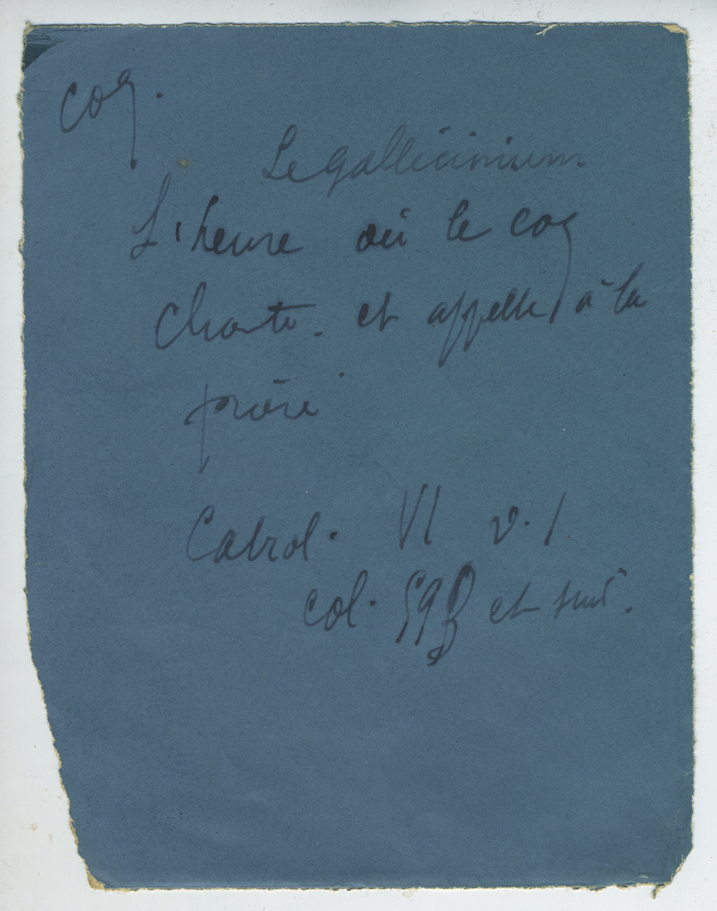 coq.
Le gallicinium
L'heure où le coq
chante. et appelle à la
prière
Cabrol. VI v. 1
col. 593 et suiv.